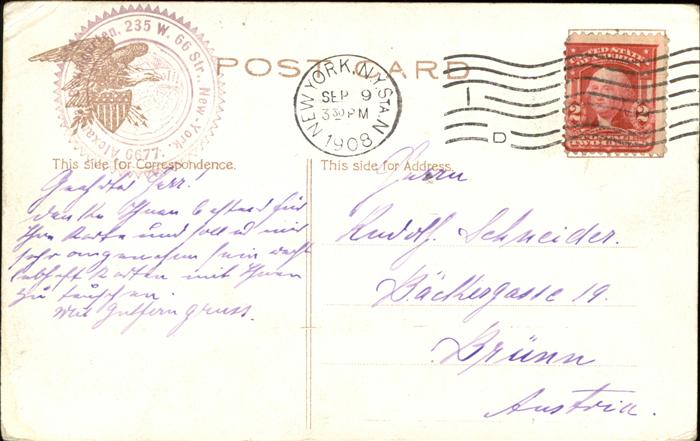 235 W. 66 Str., New York.
6677.
POST CARD
NEW YORK, N.Y. STA. N
SEP 9
3 30 PM
1908
D
UNITED STATES
OF AMERICA
2 2
This side for Correspondence.
This side for Address.
Geehrter Herr!
danke Ihnen bestens für
Ihre Karte und soll es mir
sehr angenehm sein recht
lebhaft Karten mit Ihnen
zu tauschen.
Mit gruss.
Herrn
Rudolf Schneider.
Bäckergasse 19.
Brünn
Austria.